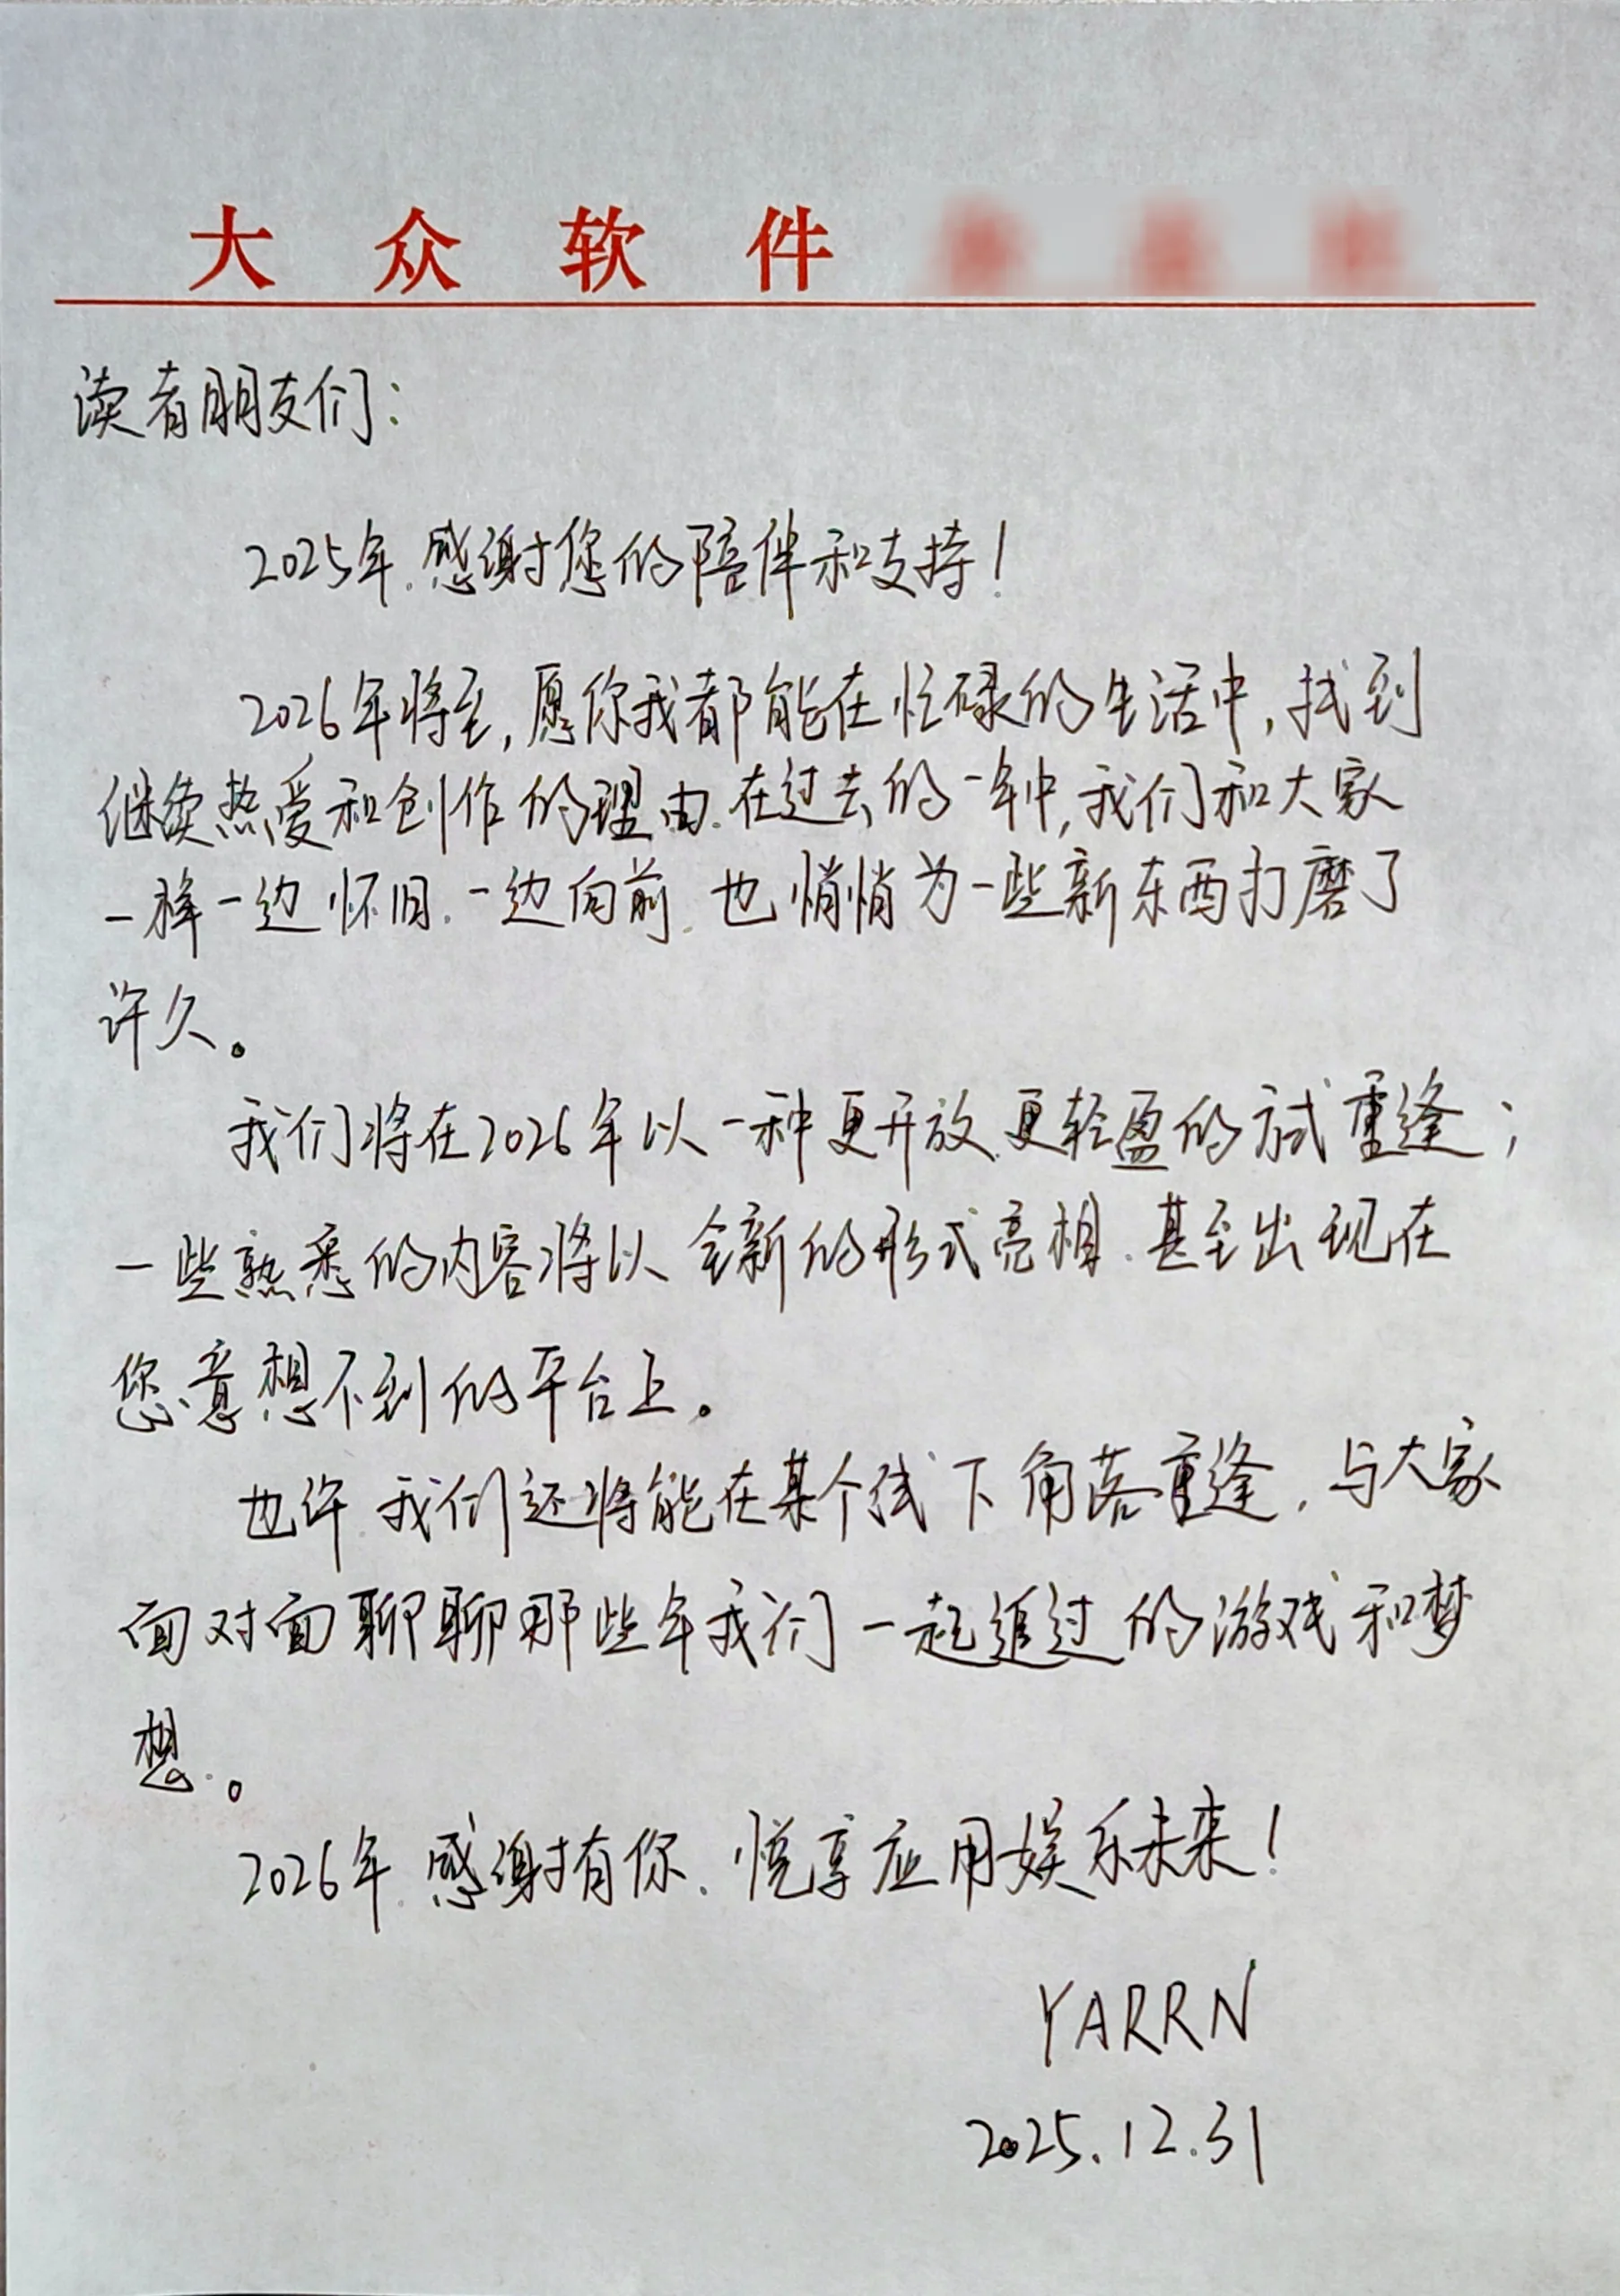 大众软件
读者朋友们：
2025年，感谢您的陪伴和支持！
2026年将至，愿你我都能在忙碌的生活中，找到
继续热爱和创作的理由。在过去的一年中，我们和大家
一样一边怀旧，一边向前，也悄悄为一些新东西打磨了
许久。
我们将在2026年以一种更开放、更轻盈的方式重逢；
一些熟悉的内容将以全新的形式亮相，甚至出现在
您意想不到的平台上。
也许，我们还将能在某个线下角落重逢，与大家
面对面聊聊那些年我们一起追过的游戏和梦
想。
2026年，感谢有你，悦享应用娱乐未来！
YARRN
2025.12.31